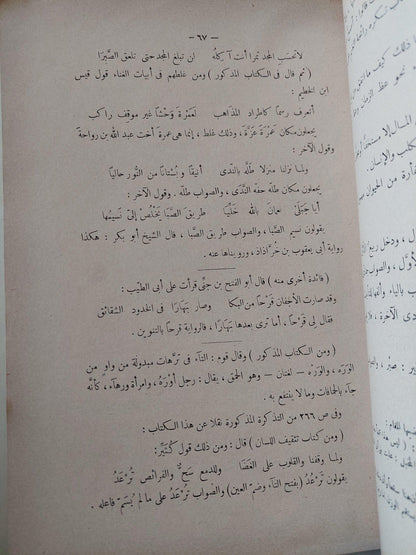 — ٦٧ —
لاتحسَبِ المجد تمرا أنت آكلهُ لن تبلغ المجدحتى تلعَق الصَّبِرَا
( ثم قال فى السكتاب المذكور ) ومن غلطهم فى أبيات الغناء قول قيس
ابن الخطيم :
أتعرف رسمًا كاطراد المذاهب لعَمْرَةَ وَحْشًا غير موقِف راكب
يجعلون مكان عَمْرَةَ عَزَّةَ ، وذلك غلط ، إنما هى عمرة أخت عبد الله بن رواحة
وقول الآخر :
ولما نزلنا منزلا طلَّه بالنَّدى أنيقًا وبُستانًا من النَّور حاليا
يجعلون مكان طلَّه حفَّه النَّدى ، والصواب طلّه . وقول الآخر :
أيا جَبَلَىْ نعمانَ بالله خَلّيا طريق الصَّبَا يَخْلُصْ إلىّ نسيمُها
يقولون نسيم الصَّبا ، والصواب طريق الصَّبا ، قال الشيخ أبو بكر : هكذا
رواية أبى يعقوب بن خُرَّاذاذ ، وروبناها عنه .
( فائدة أخرى منه ) قال أبو الفتح بن جنّى قرأت على أبى الطيّب :
وقد صارت الأجفان قَرْحًا من البكا وصار بَهارًا فى الخدود الشقائق
فقال لى قَرْحًا ، أما ترى بعدها بَهَارًا ، فالرواية قرحًا بالتنوين .
( ومن السكتاب المذكور ) وقال قوم : التاء فى تُرَّهات مبدولة من واو من
الوَرَه ، والوَرَهُ — لغتان — وهو الحمق ، يقال : رجل أوْرَهُ ، وامرأة ورهاء ، كأنَّه
جاء بالحماقات وما لا ينتفع به .
وفى ص ٣٦٦ من التذكرة المذكورة نقلا عن هذا السكتاب :
( ومن كتاب تثقيف اللسان ) قال : ومن ذلك قول كُثَيِّر :
ولما وقفنا والقلوب على الغَضَا وللدمع سَحٌّ والفرائص تُرْعَدُ
يقولون تَرْعُدُ ( بفتح التاء وضمّ العين ) والصواب تُرْعَدُ على مالم يُسَمّ فاعله .